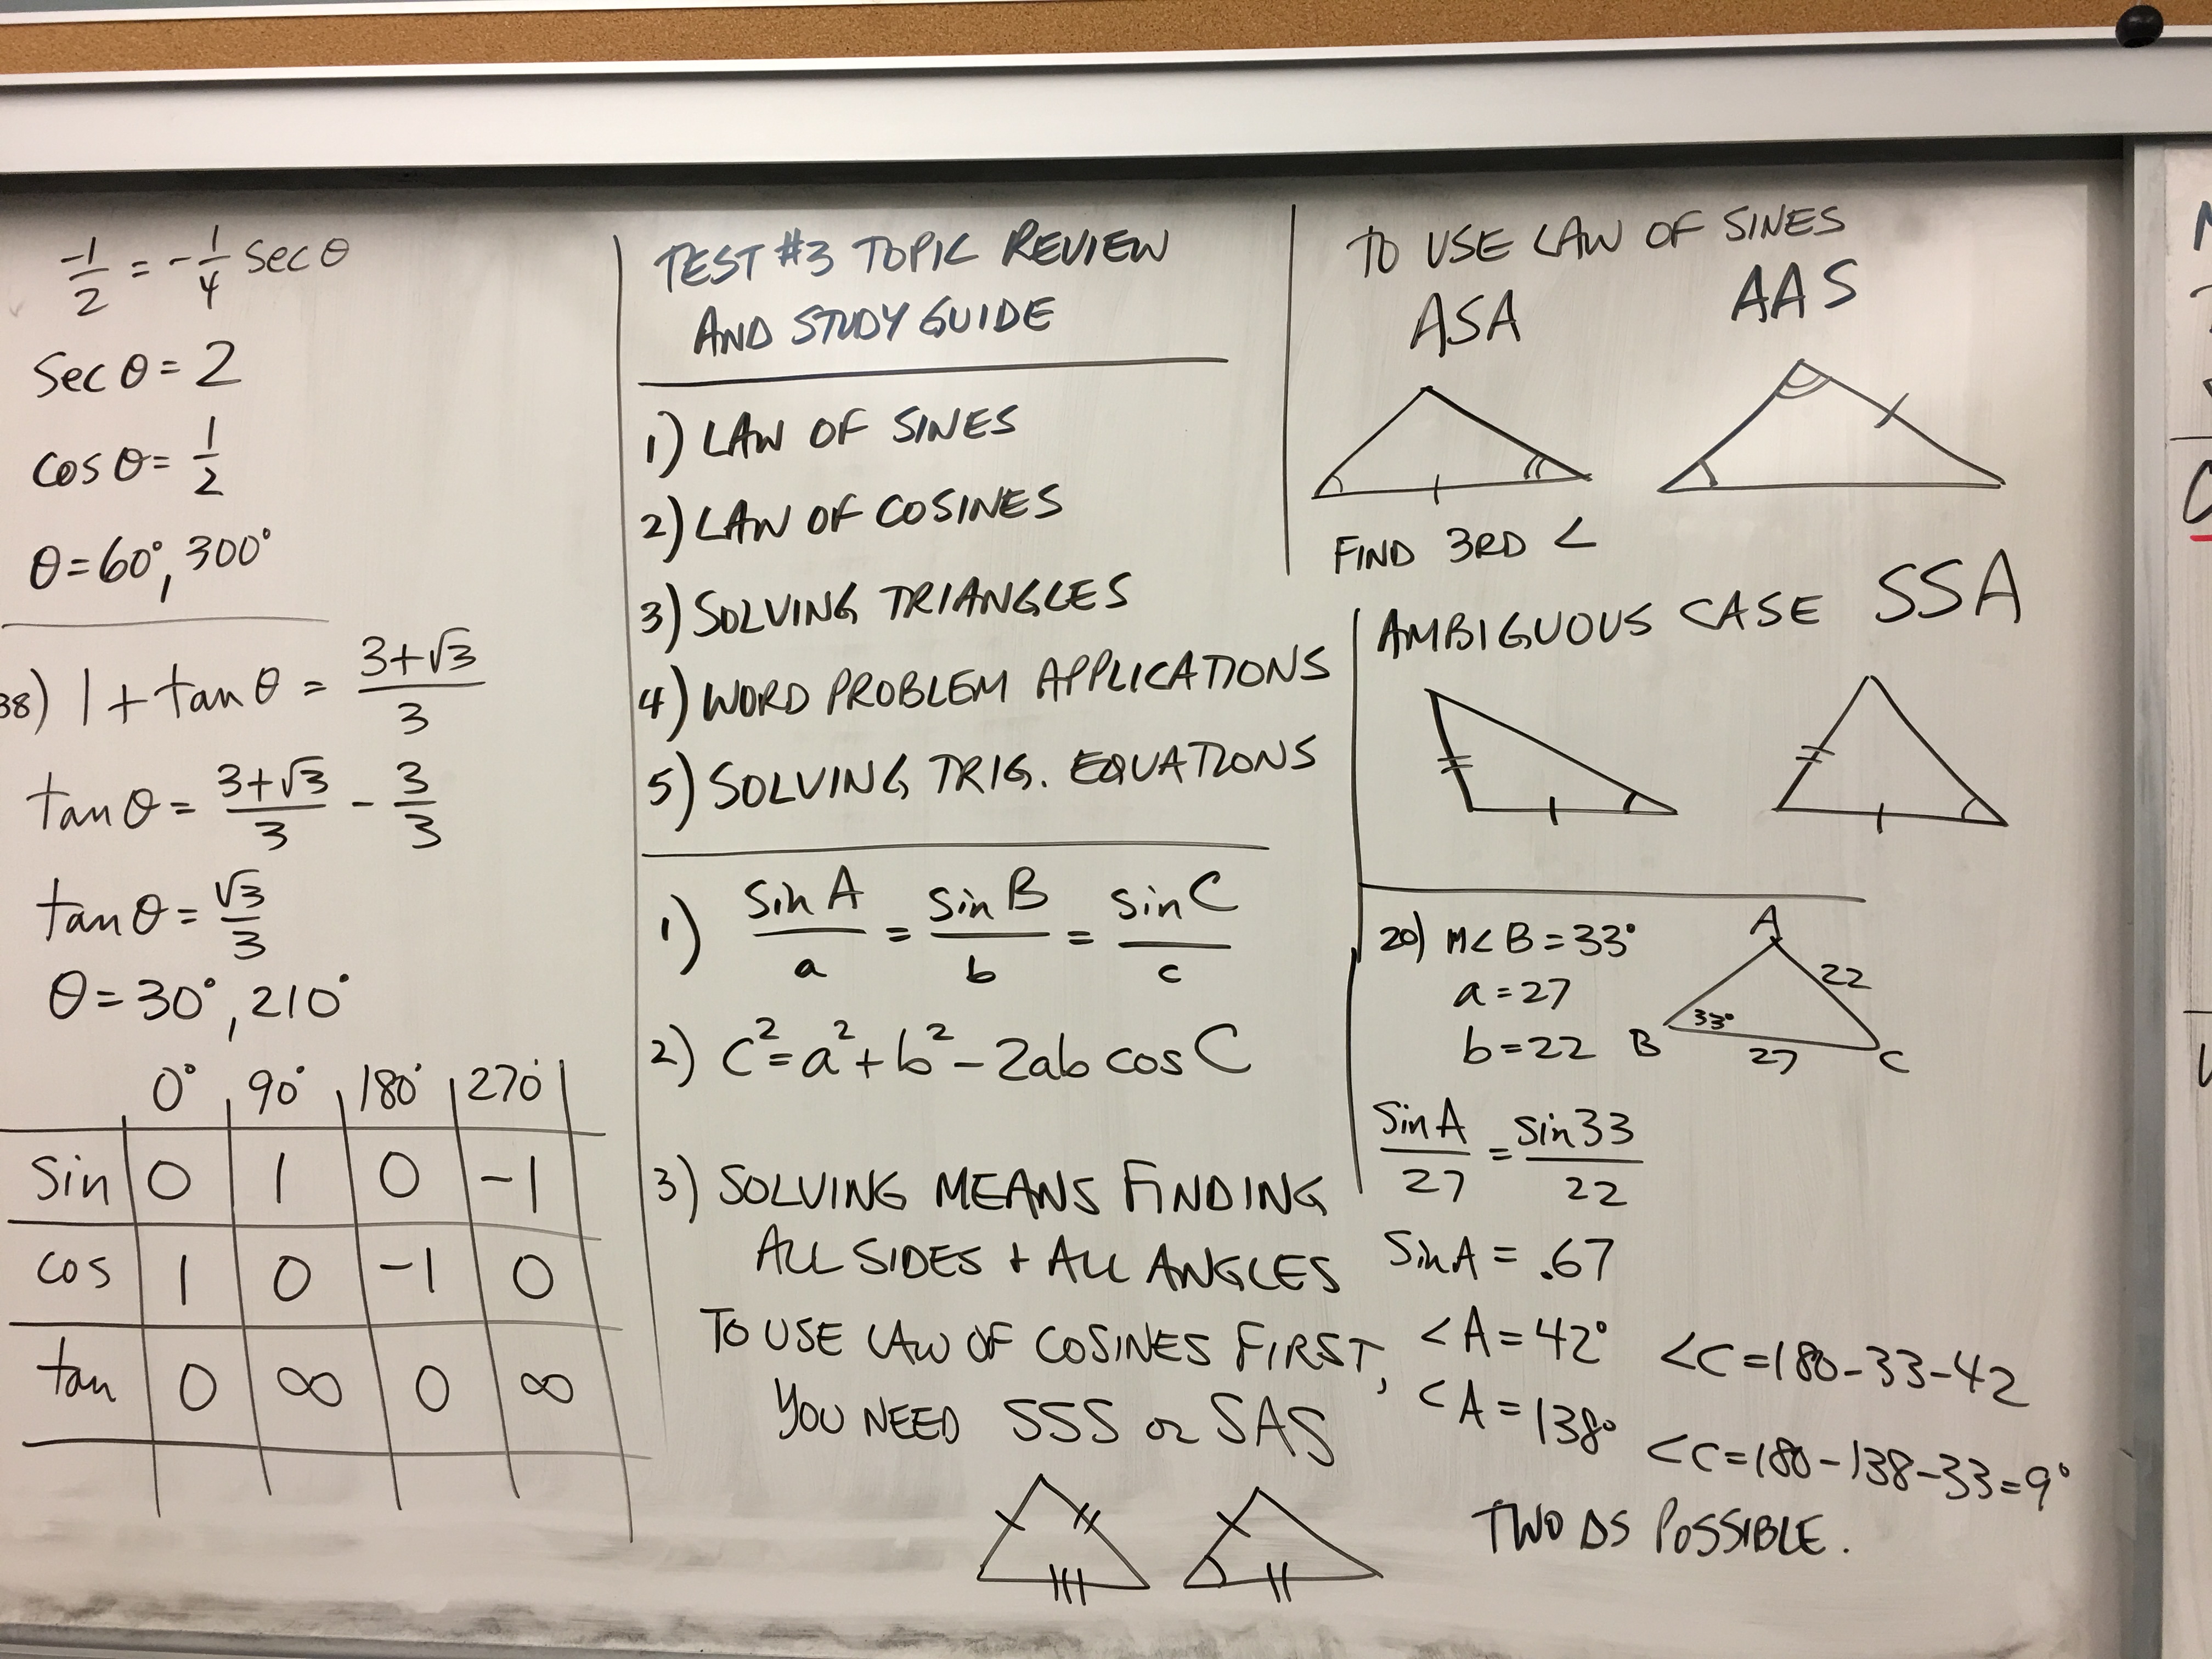 -1/2 = -1/4 sec θ
sec θ = 2
cos θ = 1/2
θ = 60°, 300°
38) 1 + tan θ = (3+√3)/3
tan θ = (3+√3)/3 - 3/3
tan θ = √3/3
θ = 30°, 210°
0° 90° 180° 270°
sin 0 1 0 -1
cos 1 0 -1 0
tan 0 ∞ 0 ∞
TEST #3 TOPIC REVIEW
AND STUDY GUIDE
1) LAW OF SINES
2) LAW OF COSINES
3) SOLVING TRIANGLES
4) WORD PROBLEM APPLICATIONS
5) SOLVING TRIG. EQUATIONS
1) sin A/a = sin B/b = sin C/c
2) c² = a² + b² - 2ab cos C
3) SOLVING MEANS FINDING
ALL SIDES + ALL ANGLES
TO USE LAW OF COSINES FIRST,
YOU NEED SSS or SAS
TO USE LAW OF SINES
ASA AAS
FIND 3RD <
AMBIGUOUS CASE SSA
20) m< B = 33°
a = 27
b = 22
A
22
33°
B
27
C
sin A/27 = sin 33/22
sin A = .67
< A = 42° < C = 180-33-42
< A = 138° < C = 180-138-33 = 9°
TWO Δs POSSIBLE.